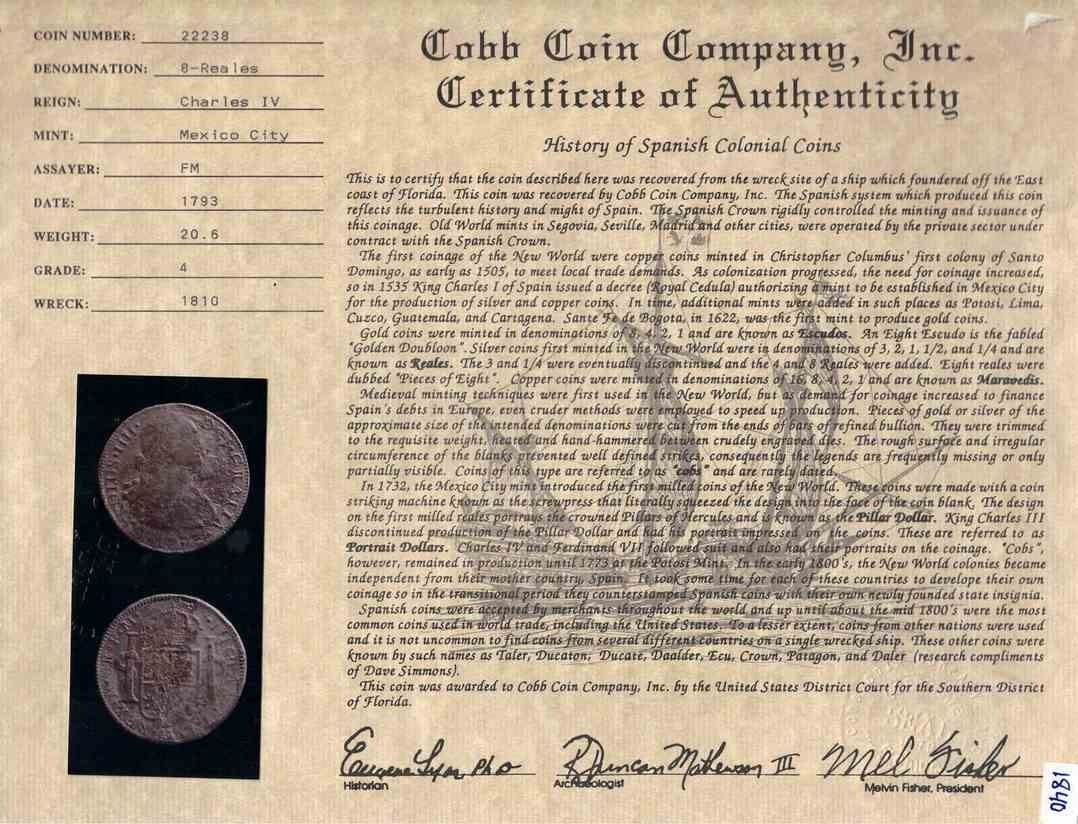 COIN NUMBER: 22238
DENOMINATION: 8-Reales
REIGN: Charles IV
MINT: Mexico City
ASSAYER: FM
DATE: 1793
WEIGHT: 20.6
GRADE: 4
WRECK: 1810
Cobb Coin Company, Inc.
Certificate of Authenticity
History of Spanish Colonial Coins
This is to certify that the coin described here was recovered from the wreck site of a ship which foundered off the East
coast of Florida. This coin was recovered by Cobb Coin Company, Inc. The Spanish system which produced this coin
reflects the turbulent history and might of Spain. The Spanish Crown rigidly controlled the minting and issuance of
this coinage. Old World mints in Segovia, Seville, Madrid and other cities, were operated by the private sector under
contract with the Spanish Crown.
The first coinage of the New World were copper coins minted in Christopher Columbus' first colony of Santo
Domingo, as early as 1505, to meet local trade demands. As colonization progressed, the need for coinage increased,
so in 1535 King Charles I of Spain issued a decree (Royal Cedula) authorizing a mint to be established in Mexico City
for the production of silver and copper coins. In time, additional mints were added in such places as Potosi, Lima,
Cuzco, Guatemala, and Cartagena. Sante Fe de Bogota, in 1622, was the first mint to produce gold coins.
Gold coins were minted in denominations of 8, 4, 2, 1 and are known as Escudos. An Eight Escudo is the fabled
"Golden Doubloon". Silver coins first minted in the New World were in denominations of 3, 2, 1, 1/2, and 1/4 and are
known as Reales. The 3 and 1/4 were eventually discontinued and the 4 and 8 Reales were added. Eight reales were
dubbed "Pieces of Eight". Copper coins were minted in denominations of 16, 8, 4, 2, 1 and are known as Maravedis.
Medieval minting techniques were first used in the New World, but as demand for coinage increased to finance
Spain's debts in Europe, even cruder methods were employed to speed up production. Pieces of gold or silver of the
approximate size of the intended denominations were cut from the ends of bars of refined bullion. They were trimmed
to the requisite weight, heated and hand-hammered between crudely engraved dies. The rough surface and irregular
circumference of the blanks prevented well defined strikes, consequently the legends are frequently missing or only
partially visible. Coins of this type are referred to as "cobs" and are rarely dated.
In 1732, the Mexico City mint introduced the first milled coins of the New World. These coins were made with a coin
striking machine known as the screwpress that literally squeezed the design into the face of the coin blank. The design
on the first milled reales portrays the crowned Pillars of Hercules and is known as the Pillar Dollar. King Charles III
discontinued production of the Pillar Dollar and had his portrait impressed on the coins. These are referred to as
Portrait Dollars. Charles IV and Ferdinand VII followed suit and also had their portraits on the coinage. "Cobs",
however, remained in production until 1773 at the Potosi Mint. In the early 1800's, the New World colonies became
independent from their mother country, Spain. It took some time for each of these countries to develope their own
coinage so in the transitional period they counterstamped Spanish coins with their own newly founded state insignia.
Spanish coins were accepted by merchants throughout the world and up until about the mid 1800's were the most
common coins used in world trade, including the United States. To a lesser extent, coins from other nations were used
and it is not uncommon to find coins from several different countries on a single wrecked ship. These other coins were
known by such names as Taler, Ducaton, Ducate, Daalder, Ecu, Crown, Patagon, and Daler (research compliments
of Dave Simmons).
This coin was awarded to Cobb Coin Company, Inc. by the United States District Court for the Southern District
of Florida.
Eugene Lyon PhD
R Duncan Mathewson III
Mel Fisher
Historian
Archaeologist
Melvin Fisher, President
SEAL
1840